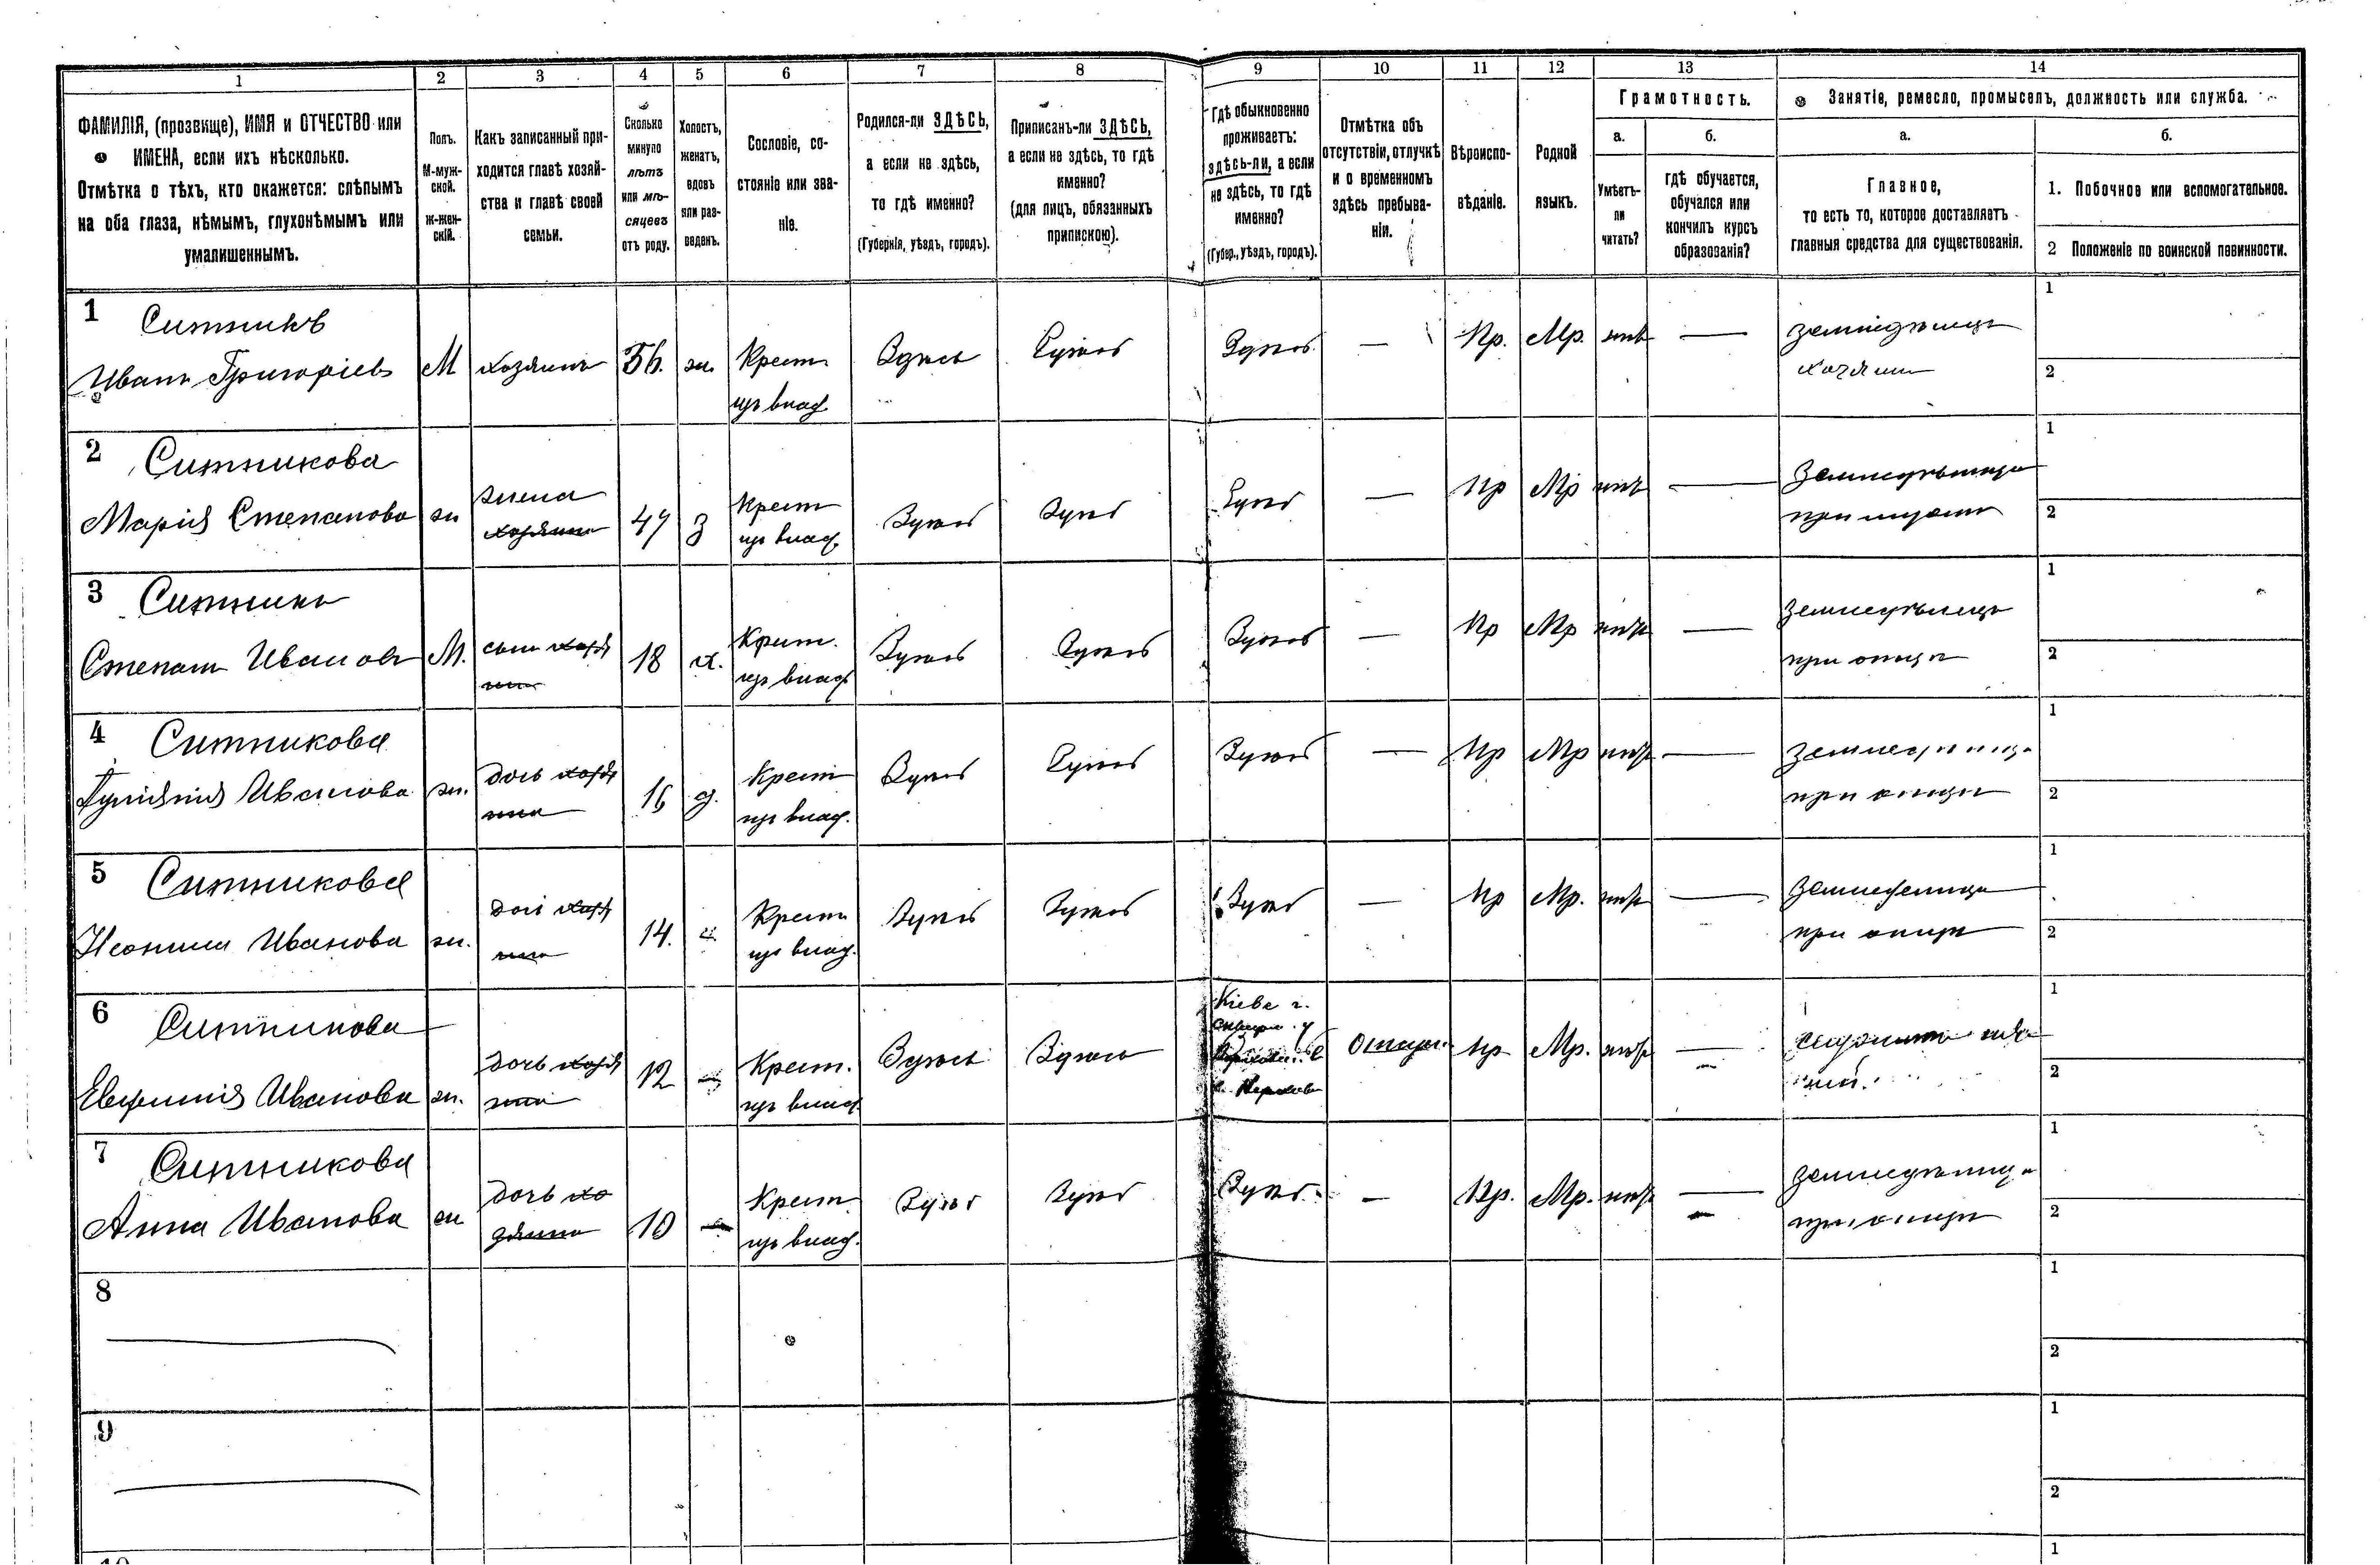 1 2 3 4 5 6 7 8 9 10 11 12 13 14
ФАМИЛІЯ, (прозвище), ИМЯ и ОТЧЕСТВО или
ИМЕНА, если ихъ нѣсколько.
Отмѣтка о тѣхъ, кто окажется: слѣпымъ
на оба глаза, нѣмымъ, глухонѣмымъ или
умалишеннымъ.
Полъ.
М-муж-
ской.
ж-жен-
скій.
Какъ записанный при-
ходится главѣ хозяй-
ства и главѣ своей
семьи.
Сколько
минуло
лѣтъ
или мѣ-
сяцевъ
отъ роду.
Холостъ,
женатъ,
вдовъ
или раз-
веденъ.
Сословіе, со-
стояніе или зва-
ніе.
Родился-ли ЗДѢСЬ,
а если не здѣсь,
то гдѣ именно?
(Губернія, уѣздъ, городъ).
Приписанъ-ли ЗДѢСЬ,
а если не здѣсь, то гдѣ
именно?
(для лицъ, обязанныхъ
припискою).
Гдѣ обыкновенно
проживаетъ:
здѣсь-ли, а если
не здѣсь, то гдѣ
именно?
(Губер., уѣздъ, городъ).
Отмѣтка объ
отсутствіи, отлучкѣ
и о временномъ
здѣсь пребыва-
ніи.
Вѣроиспо-
вѣданіе.
Родной
языкъ.
Грамотность.
а.
Умѣетъ-
ли
читать?
б.
гдѣ обучается,
обучался или
кончилъ курсъ
образованія?
Занятіе, ремесло, промыселъ, должность или служба.
а.
Главное,
то есть то, которое доставляетъ
главныя средства для существованія.
б.
1. Побочное или вспомогательное.
2 Положеніе по воинской повинности.
1 Ситникъ
Иванъ Григоріевъ М хозяинъ 56. ж. Крест. Здѣсь Здѣсь Здѣсь — Пр. Мр. нѣтъ — земледѣлецъ
изъ влад. хозяин
1
2
2 Ситникова
Марія Степанова ж жена хозяина 47 з Крест Здѣсь Здѣсь Здѣсь — Пр Мр нѣтъ — земледѣлица
изъ влад. при мужѣ
1
2
3 Ситникъ
Степанъ Ивановъ М. сынъ хозя 18 х. Крест. Здѣсь Здѣсь Здѣсь — Пр Мр нѣтъ — земледѣлецъ
ина изъ влад при отцѣ
1
2
4 Ситникова
Иванова ж. дочь хозя 16 д. Крест Здѣсь Здѣсь Здѣсь — Пр Мр нѣтъ — земледѣлица
ина изъ влад. при отцѣ
1
2
5 Ситникова
Неонила Иванова ж. дочь хозя 14. Крест Здѣсь Здѣсь Здѣсь — Пр Мр. нѣтъ — земледѣлица
ина изъ влад. при отцѣ
1
2
6 Ситникова
Евфимія Иванова ж. дочь хозя 12 — Крест. Здѣсь Здѣсь Кіевс г. Пр Мр. нѣтъ —
ина изъ влад.
1
2
7 Ситникова
Анна Иванова ж дочь хо 10 — Крест Здѣсь Здѣсь Здѣсь — Пр. Мр. нѣтъ — земледѣлица
зяина изъ влад. при отцѣ
1
2
8
1
2
9
1
2
1